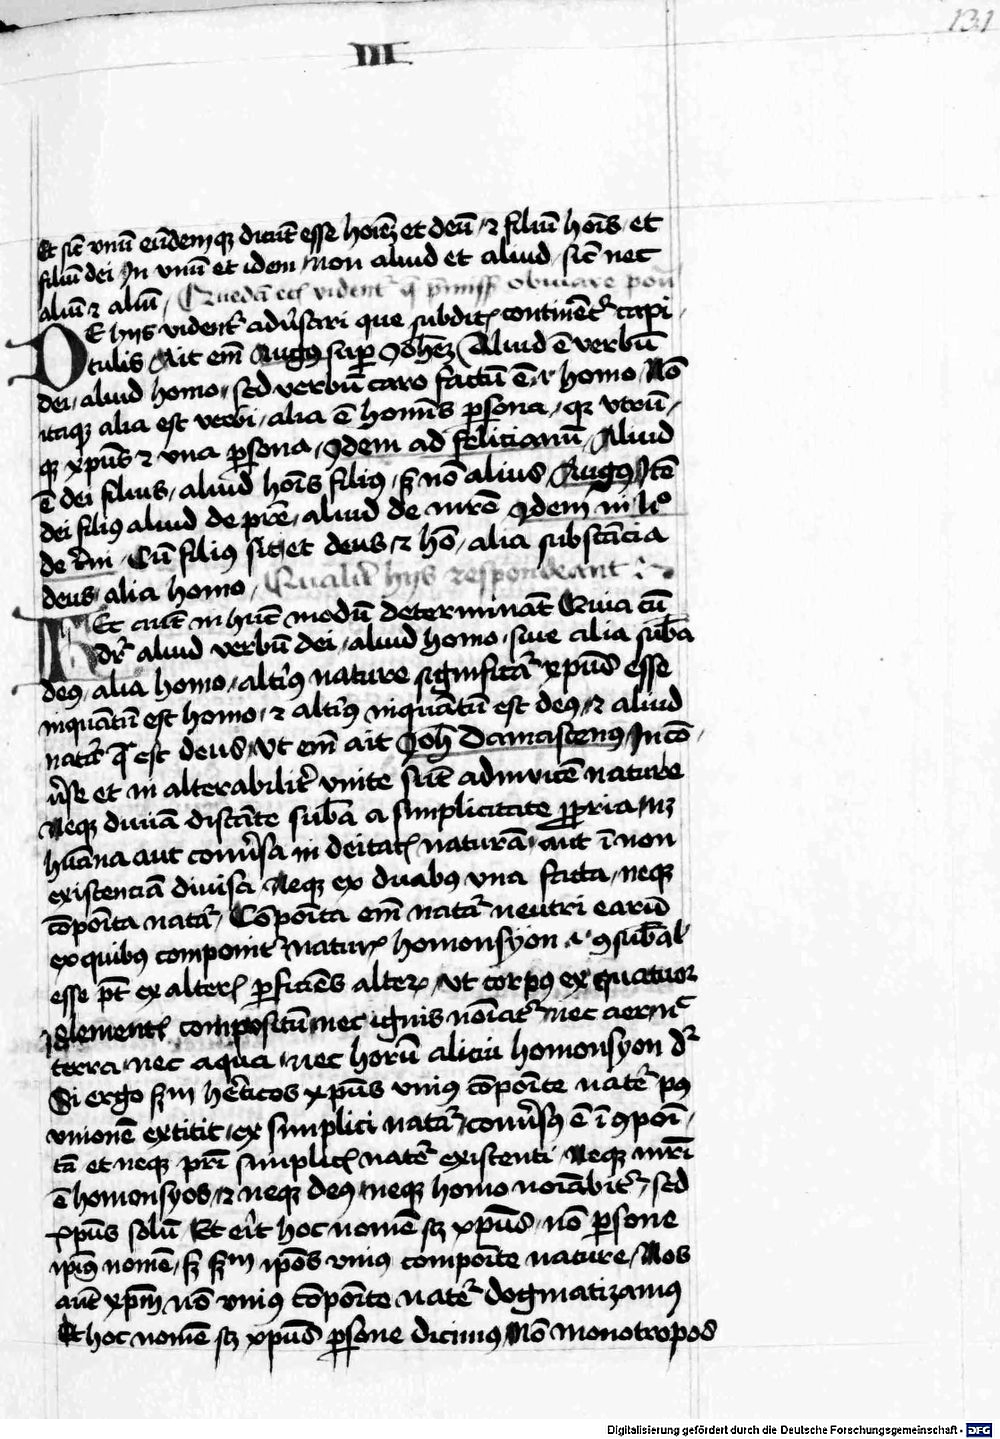 131
III
Et sic̄ vnū eūdemqꝫ dicūt esse hoīeꝫ et deū ⁊ filiū hoīs et
filiū dei In vnū et idem non aliud et aliud sic̄ nec
aliū ⁊ aliū Quedā eciā vident̄ q̄ p̄miss̄ obuiare
DE hijs vident̄ aduersari que subditis continēt̄ capi
tulis Ait em̄ Augꝰ sup̄ Joh̄eꝫ Aliud ē verbū
dei aliud homo sed verbū caro factū ē ⁊ homo Nō
itaqꝫ alia est verbi alia ē hominis ꝑsona qꝛ vtrū
qꝫ xp̄us ⁊ vna ꝑsona Idem ad felicianū Aliud
ē dei filius aliud hoīs filiꝰ sꝫ nō alius Augꝰ Itē
dei filiꝰ aliud de pr̄e aliud de mr̄e Idem in liº
de t̄rni Cū filiꝰ sit et deus ⁊ hō alia substācia
deus alia homo Qualiter hijs respondeant
Et aiūt in hūc modū determināt Quia cū
dr̄ aliud verbū dei aliud homo siue alia sub̄a
deꝰ alia homo altiꝰ nature significat̄ xp̄us esse
inquātū est homo ⁊ altiꝰ inquātū est deꝰ ⁊ aliud
nat̄r q̄ est deus vt em̄ ait Joh̄ Damascenꝰ Incō
u̇se et in alterabilit̄ vnite sūt adinuicē nature
Neqꝫ diuīa distāte sub̄a a simplicitate ꝓpria neqꝫ
huāna aut cōuersa in deitatis naturā aut ī non
existenciā diuisa Neqꝫ ex duabꝰ vna facta neqꝫ
cōpoīta nat̄a Cōpoīta em̄ nat̄a neutri earū
ex quibꝰ componit̄ naturis homousyon .i. ꝯsub̄al̄
esse pt̄ ex alteris ꝑficiēs alterum vt corpꝰ ex quatuor
elementis compositū nec ignis noīat̄ nec aer nec
terra nec aqua nec horū alicui homousyon dr̄
Si ergo scd̄m he̅ticos xp̄us vniꝰ cōpoīte nat̄e pꝰ
vnionē extitit ex simplici nat̄a conuersꝰ ē ī ꝯpoī
tā et neqꝫ pr̄i simplicis nat̄e existenti Neqꝫ mr̄i
ē homousyos ⁊ neqꝫ deꝰ neqꝫ homo noīabit̄ sed
xp̄us solū Et erit hoc nomē sꝫ xp̄us nō ꝑsone
ipiꝰ nomē sꝫ scd̄m ip̄os vniꝰ compoīte nature Nos
aūt xp̄m nō vniꝰ cōpoīte nat̄e dogmatizamꝰ
Et hoc nomē sꝫ xp̄us ꝑsone dicimꝰ Nō monotropos
Digitalisierung gefördert durch die Deutsche Forschungsgemeinschaft - DFG